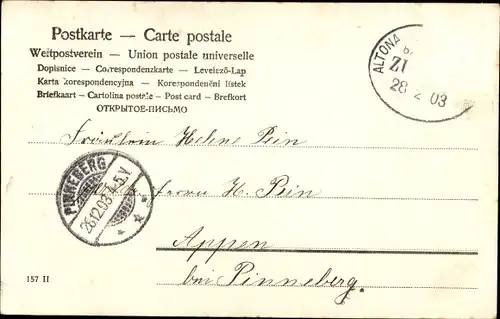 Postkarte — Carte postale
Weltpostverein — Union postale universelle
Dopisnice — Correspondenzkarte — Levelező-Lap
Karta korespondencyjna — Korespondenční lístek
Briefkaart — Cartolina postale — Post card — Brefkort
ОТКРЫТОЕ-ПИСЬМО
ALTONA
ZU
28 2 03
Fräulein Helene Pein
PINNEBERG
26.12.03 4-5.V.
Herrn H. Pein
Appen
bei Pinneberg.
157 II